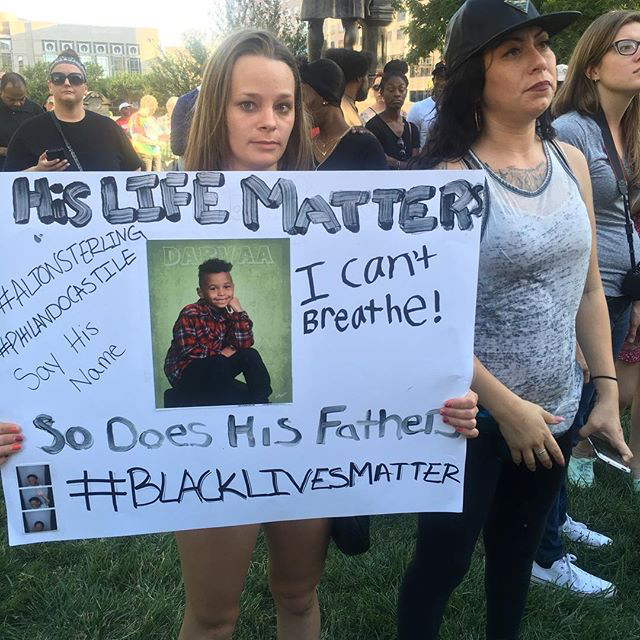 HiS LIFE MATTERS
#ALTONSTERLING
#PHILANDOCASTILE
Say His
Name
DARYAA
I can't
Breathe!
So Does His Fathers
#BLACKLIVESMATTER